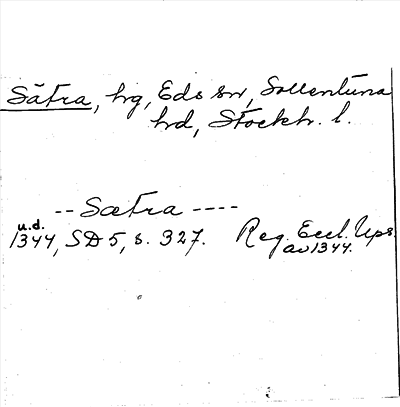 Sätra, hg, Eds sn, Sollentuna
hd, Stockh. l.
-- Sætra ----
u.d.
1344, SD 5, s. 327. Reg. Eccl. Ups.
av 1344.